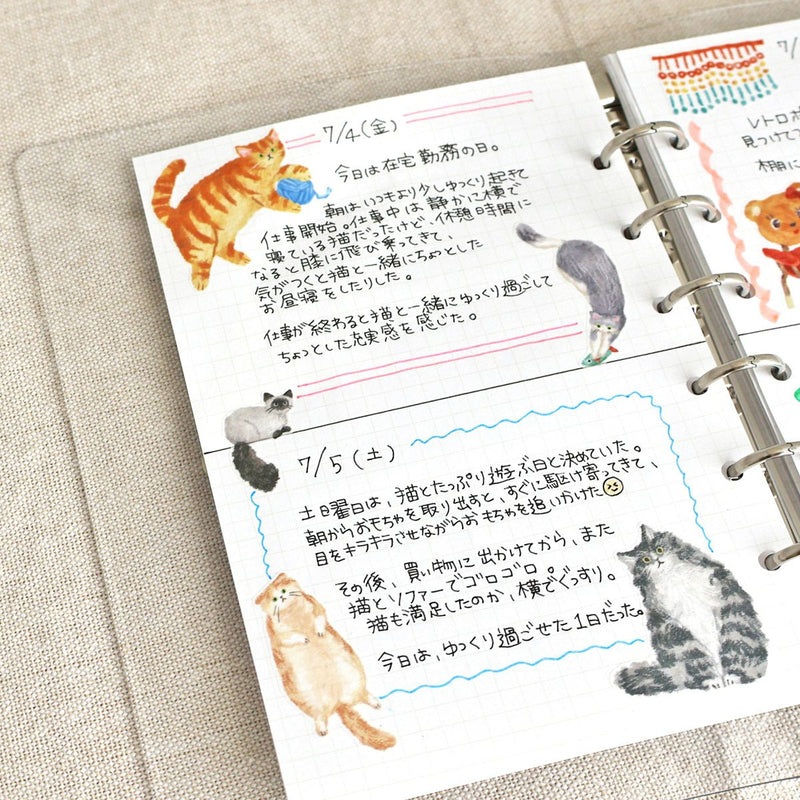 7/4(金)
今日は在宅勤務の日。
朝はいつもより少しゆっくり起きて
仕事開始。仕事中は静かに横で
寝ている猫だったけど、休憩時間に
なると膝に飛び乗ってきて、
気がつくと猫と一緒にちょっとした
お昼寝をしたりした。
仕事が終わると猫と一緒にゆっくり過ごして
ちょっとした充実感を感じた。
7/5(土)
土曜日は、猫とたっぷり遊ぶ日と決めていた。
朝からおもちゃを取り出すと、すぐに駆け寄ってきて、
目をキラキラさせながらおもちゃを追いかけた
その後、買い物に出かけてから、また
猫とソファーでゴロゴロ。
猫も満足したのか、横でぐっすり。
今日は、ゆっくり過ごせた1日だった。
7/
レトロ
見つけて
棚に